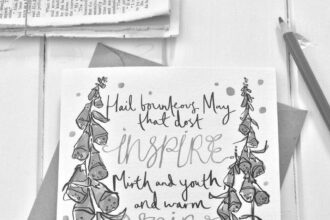 Hail bounteous May
that dost
INSPIRE
Mirth and youth
and warm